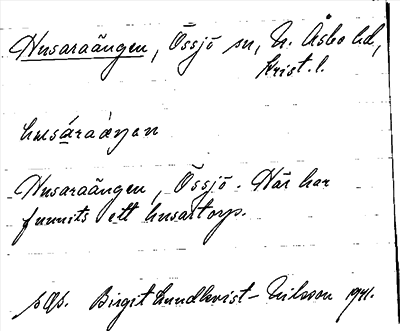 Husaraängen, Össjö sn, N. Åsbo hd,
Krist. l.
husáraàŋən
Husaraängen, Össjö. Här har
funnits ett husartorp.
Birgit Lundkvist-Nilsson 1941.